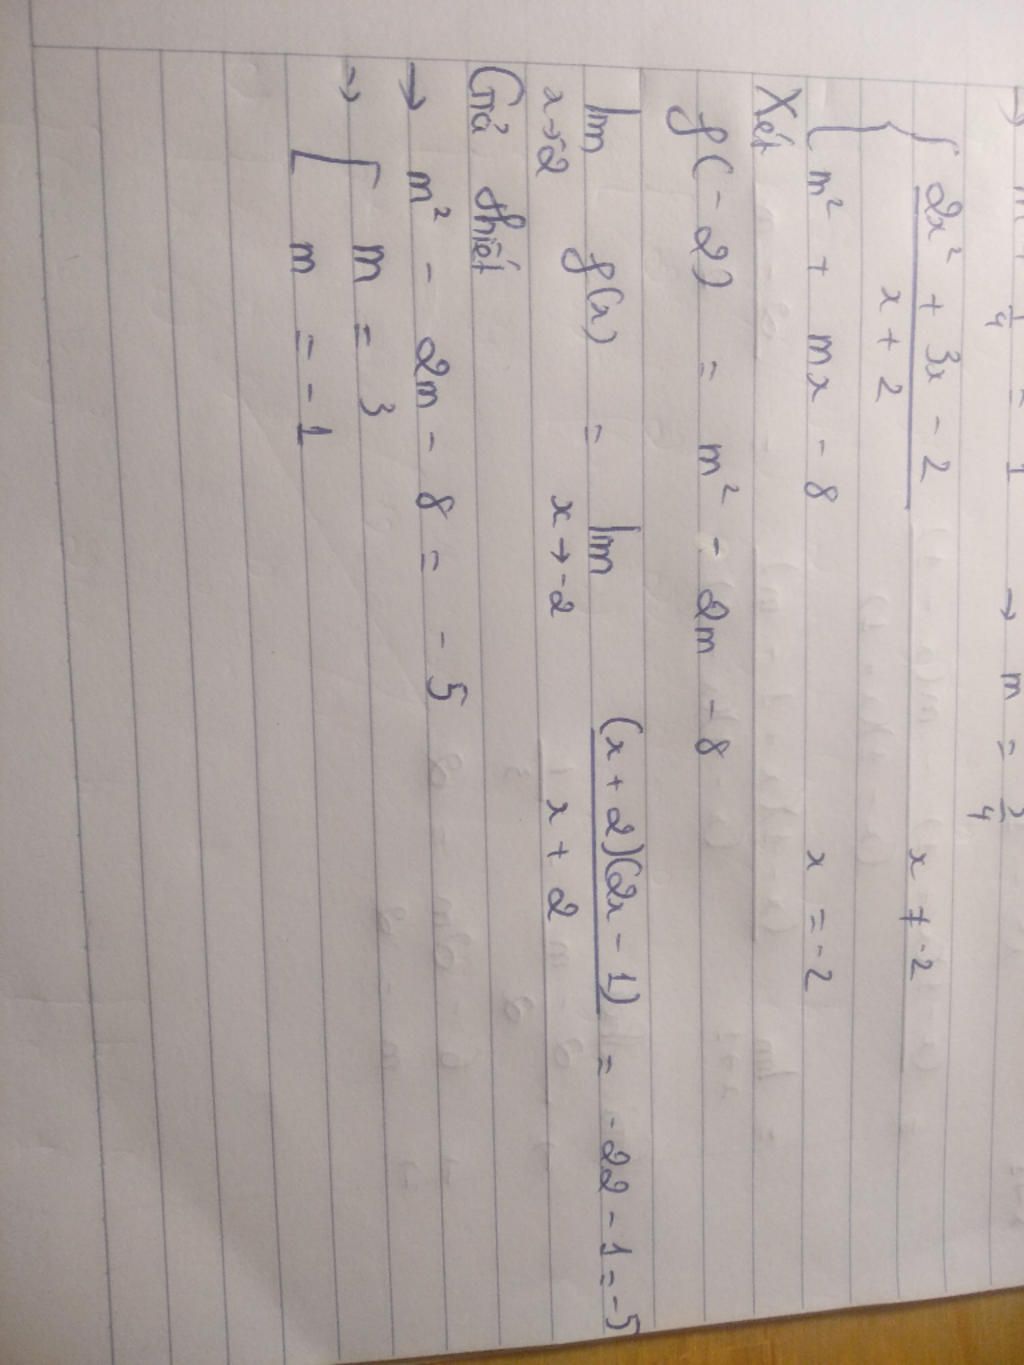 → m = 3/4
{ (2x² + 3x - 2)/(x + 2) x ≠ -2
m² + mx - 8 x = -2
Xét
f(-2) = m² - 2m - 8
lim x→-2 f(x) = lim x→-2 ((x + 2)(2x - 1))/(x + 2) = -22 - 1 = -5
Giả thiết
→ m² - 2m - 8 = -5
→ [ m = 3
m = -1